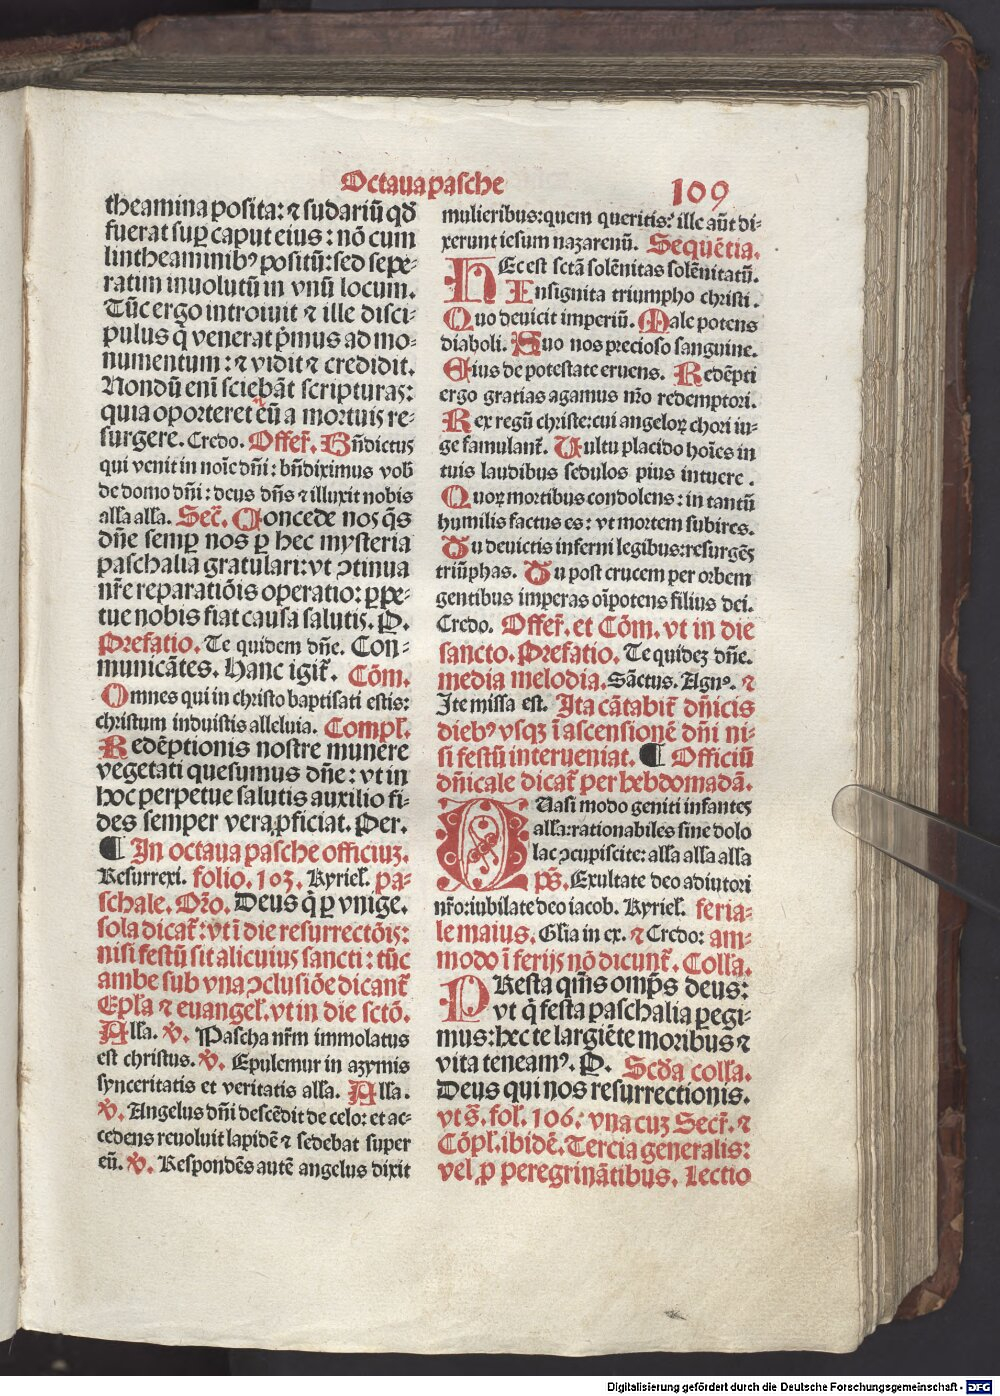 Octaua pasche 109
theamina posita: ⁊ sudariū qđ
fuerat sup̱ caput eius: nō cum
lintheaminibꝰ positū: sed sepe-
ratim inuolutū in vnū locum.
Tūc ergo introiuit ⁊ ille disci-
pulus q̄ venerat p̄mus ad mo-
numentum: ⁊ vidit ⁊ credidit.
Nondū enī sciebāt scripturas:
quia oporteret eū a mortuis re-
surgere. Credo. Offeř. Bn̄dictus
qui venit in noīe dn̄i: bn̄diximus vob̄
de domo dn̄i: deus dn̄s ⁊ illuxit nobis
alľa alľa. Seč. Concede nos q̄s
dn̄e semp̱ nos p̱ hec mysteria
paschalia gratulari: vt ↄtinua
nr̄e reparatiōis operatio: p̱pe-
tue nobis fiat causa salutis. P.
Prefatio. Te quidem dn̄e. Con-
municātes. Hanc igiť. Cōm.
Omnes qui in christo baptisati estis:
christum induistis alleluia. Compľ.
Redēptionis nostre munere
vegetati quesumus dn̄e: vt in
hoc perpetue salutis auxilio fi-
des semper vera ꝓficiat. Per.
¶ In octaua pasche officiuꝫ.
Resurrexi. folio. 103. Kyrieľ. pa-
schale. Oŕo. Deus q̄ p̱ vnige.
sola dicať: vt ī die resurrectōis:
nisi festū sit alicuius sancti: tūc
ambe sub vna ↄclusiōe dicanť
Epľa ⁊ euangeľ. vt in die sctō.
Alľa. ℣. Pascha nr̄m immolatus
est christus. ℣. Epulemur in azymis
synceritatis et veritatis alľa. Alľa.
℣. Angelus dn̄i descēdit de celo: et ac-
cedens reuoluit lapidē ⁊ sedebat super
eū. ℣. Respondēs autē angelus dixit
mulieribus: quem queritis: ille aūt di-
xerunt iesum nazarenū. Sequētia.
HEc est sctā solēnitas solēnitatū.
Insignita triumpho christi.
Quo deuicit imperiū. Male potens
diaboli. Suo nos precioso sanguine.
Eius de potestate eruens. Redēpti
ergo gratias agamus nŕo redemptori.
Rex regū christe: cui angeloꝝ chori iu-
ge famulanť. Uultu placido hoīes in
tuis laudibus sedulos pius intuere.
Quoꝝ mortibus condolens: in tantū
humilis factus es: vt mortem subires.
Tu deuictis inferni legibus: resurgēs
triūphas. Tu post crucem per orbem
gentibus imperas oīpotens filius dei.
Credo. Offeř. et Cōm. vt in die
sancto. Prefatio. Te quideꝫ dn̄e.
media melodia. Sāctus. Agnꝰ. ⁊
Ite missa est. Ita cātabiť dn̄icis
diebꝰ vsqꝫ ī ascensionē dn̄i ni-
si festū interueniat. ¶ Officiū
dn̄icale dicať per hebdomadā.
QUasi modo geniti infantes
alľa: rationabiles sine dolo
lac ↄcupiscite: alľa alľa alľa
p̄s. Exultate deo adiutori
nŕo: iubilate deo iacob. Kyrieľ. feria-
le maius. Gľia in ex. ⁊ Credo: am-
modo ī ferijs nō dicunť. Colľa.
PResta qm̄s omp̄s deus:
vt q̄ festa paschalia p̱egi-
mus: hec te largiēte moribus ⁊
vita teneamꝰ. P. Scđa colľa.
Deus qui nos resurrectionis.
vt s̄. foľ. 106: vna cuꝫ Secř. ⁊
Cōpľ. ibidē. Tercia generalis:
vel ꝓ peregrinātibus. Lectio
Digitalisierung gefördert durch die Deutsche Forschungsgemeinschaft - DFG